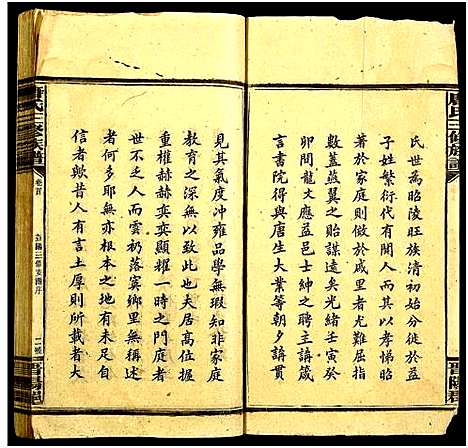 唐氏三修族譜
氏世爲昭陵旺族清初始遷於益
子姓繁衍代有聞人而其以孝悌昭
著於家庭則倣於戚里者尤難屈指
數蓋燕翼之貽謀遠矣光緒壬寅癸
卯間龍丈應益邑士紳之聘主講箴
言書院得與唐生大業等朝夕講貫
見其氣度冲雍品學無瑕知非家庭
教育之深無以致此也夫居高位握
重權赫赫奕奕顯耀一時之門庭者
世不乏人而雲礽落寞鄉里無稱述
者何多耶無亦根本之地有未足以
信者歟昔人有言土厚則所載者大
唐氏三修族譜
卷首
益陽三修支譜序
晉陽堂